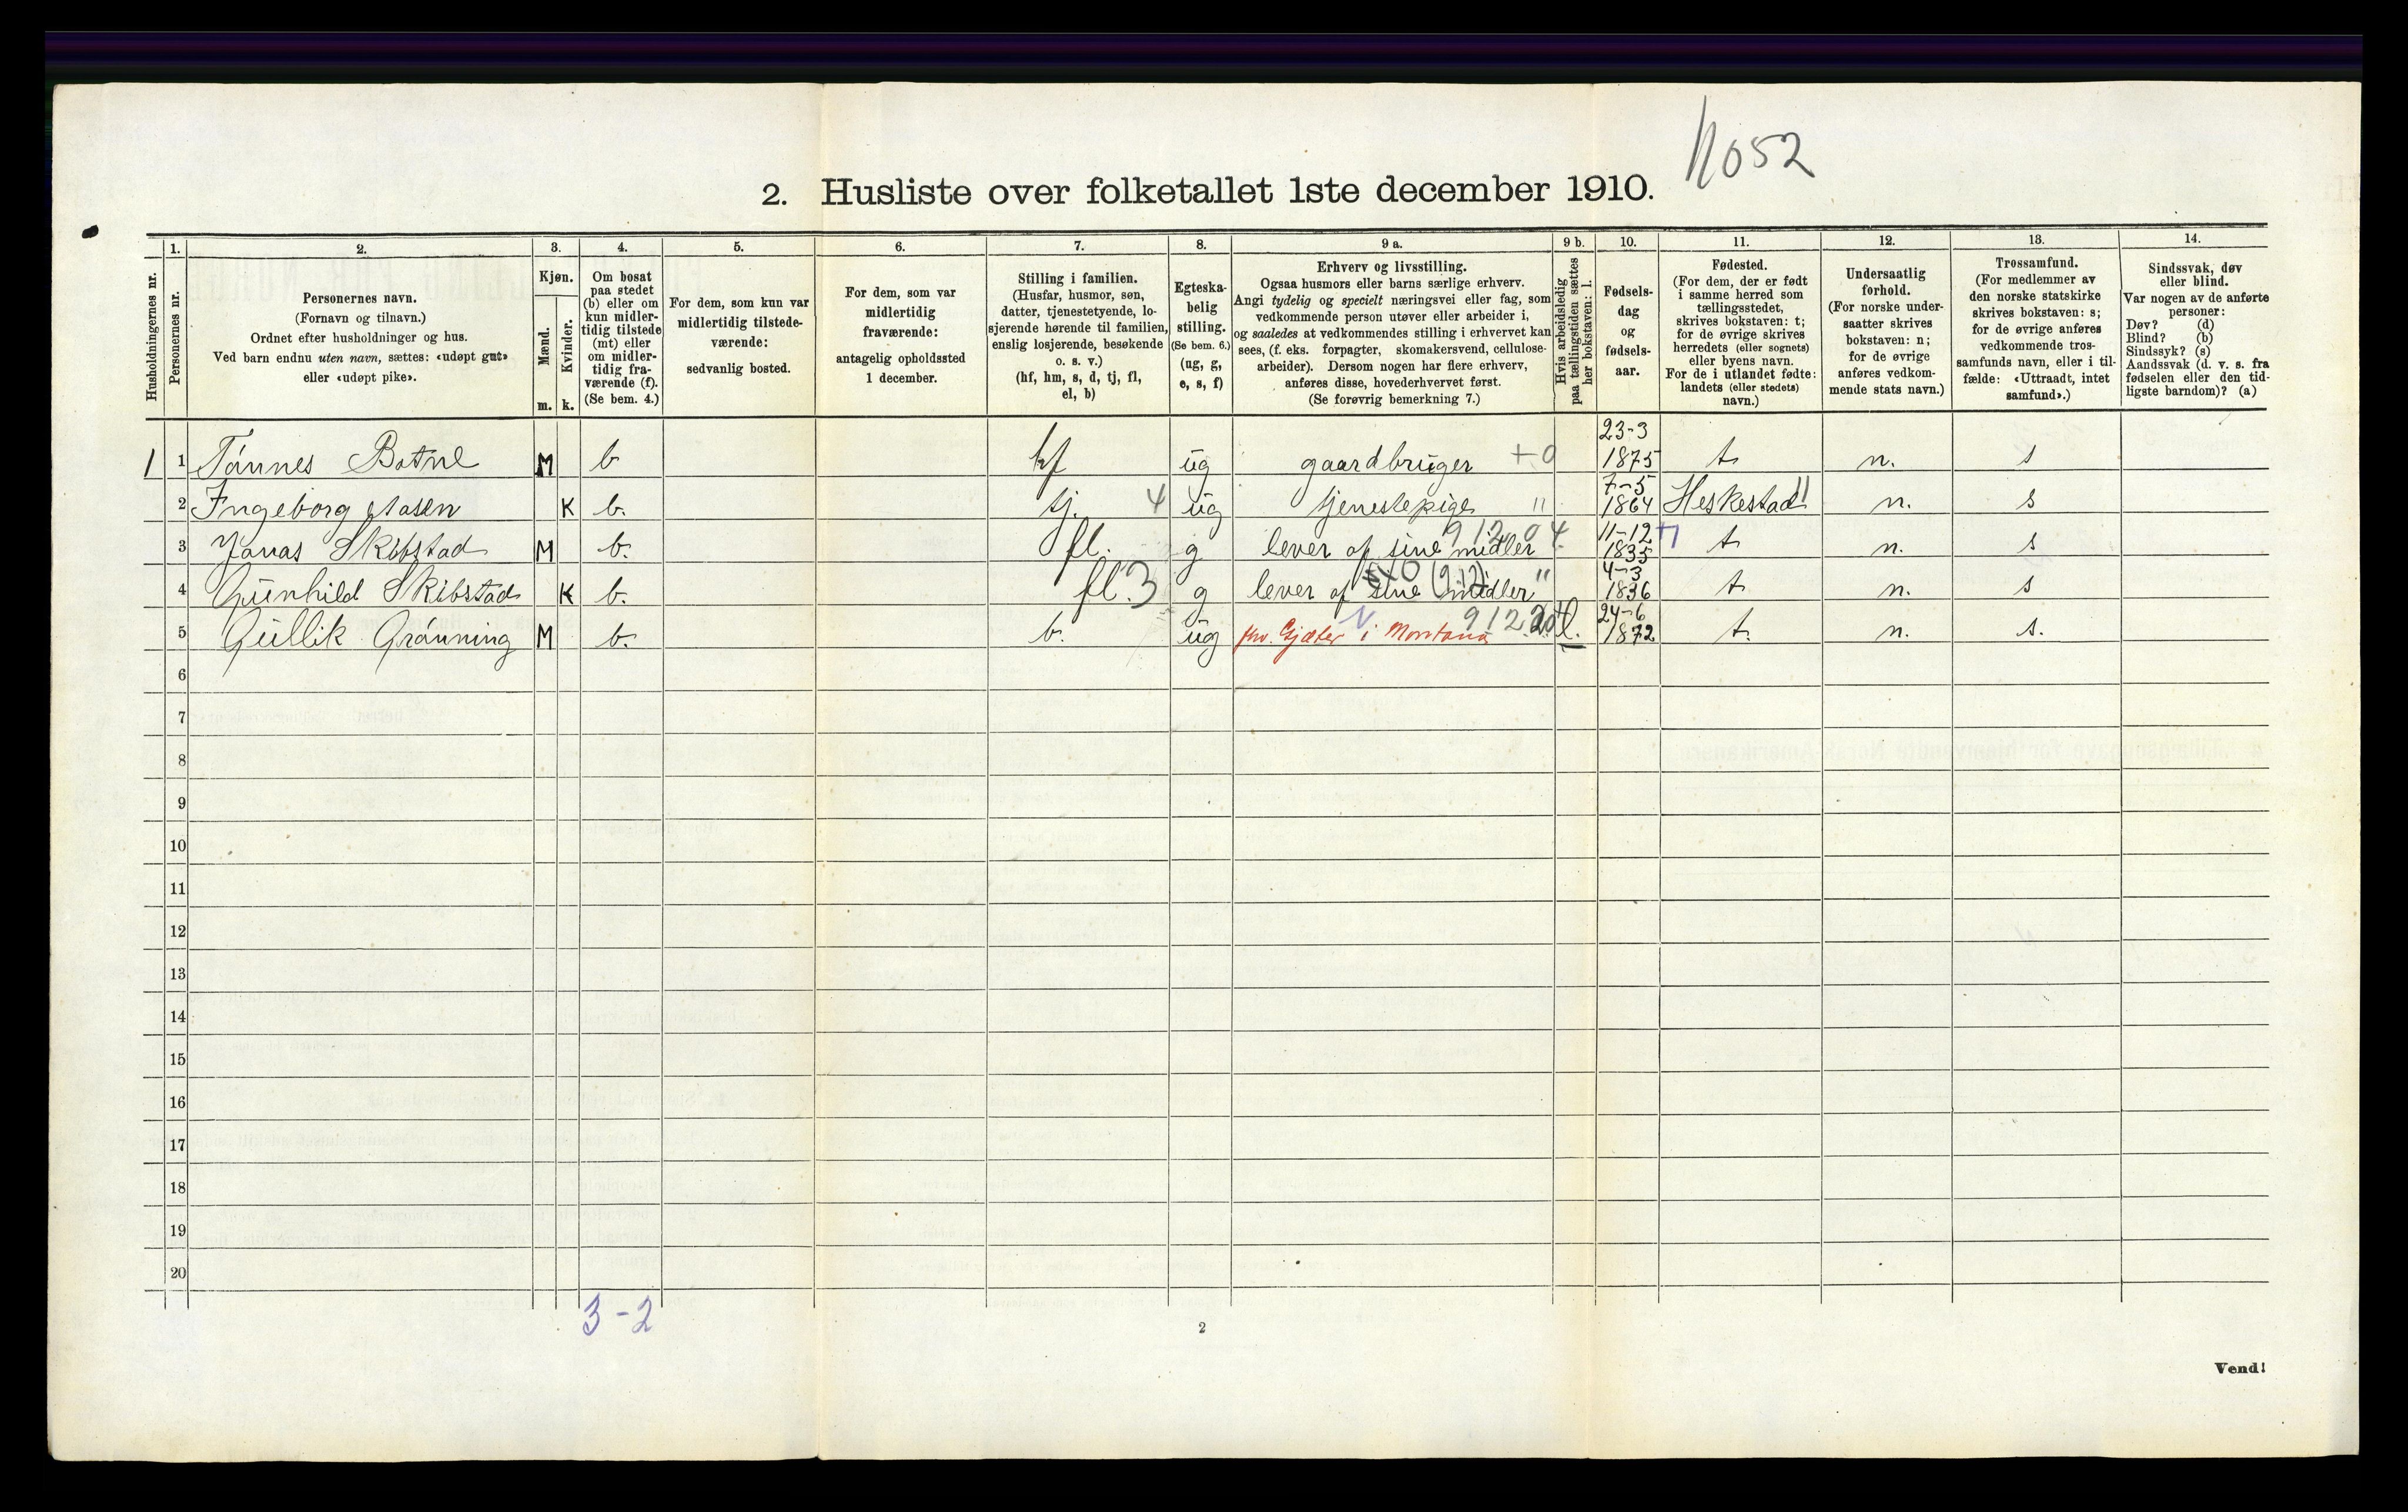 1052
2. Husliste over folketallet 1ste december 1910.
Husholdningernes nr.
1. Personernes nr.
2. Personernes navn.
(Fornavn og tilnavn.)
Ordnet efter husholdninger og hus.
Ved barn endnu uten navn, sættes: «udøpt gut»
eller «udøpt pike».
3. Kjøn.
Mænd. m.
Kvinder. k.
4. Om bosat
paa stedet
(b) eller om
kun midler-
tidig tilstede
(mt) eller
om midler-
tidig fra-
værende (f).
(Se bem. 4.)
5. For dem, som kun var
midlertidig tilstede-
værende:
sedvanlig bosted.
6. For dem, som var
midlertidig
fraværende:
antagelig opholdssted
1 december.
7. Stilling i familien.
(Husfar, husmor, søn,
datter, tjenestetyende, lo-
sjerende hørende til familien,
enslig losjerende, besøkende
o. s. v.)
(hf, hm, s, d, tj, fl,
el, b)
8. Egteska-
belig
stilling.
(Se bem. 6.)
(ug, g,
e, s, f)
9 a. Erhverv og livsstilling.
Ogsaa husmors eller barns særlige erhverv.
Angi tydelig og specielt næringsvei eller fag, som
vedkommende person utøver eller arbeider i,
og saaledes at vedkommendes stilling i erhvervet kan
sees, (f. eks. forpagter, skomakersvend, cellulose-
arbeider). Dersom nogen har flere erhverv,
anføres disse, hovederhvervet først.
(Se forøvrig bemerkning 7.)
9 b. Hvis arbeidsledig
paa tællingstiden sættes
her bokstaven: l.
10. Fødsels-
dag
og
fødsels-
aar.
11. Fødested.
(For dem, der er født
i samme herred som
tællingsstedet,
skrives bokstaven: t;
for de øvrige skrives
herredets (eller sognets)
eller byens navn.
For de i utlandet fødte:
landets (eller stedets)
navn.)
12. Undersaatlig
forhold.
(For norske under-
saatter skrives
bokstaven: n;
for de øvrige
anføres vedkom-
mende stats navn.)
13. Trossamfund.
(For medlemmer av
den norske statskirke
skrives bokstaven: s;
for de øvrige anføres
vedkommende tros-
samfunds navn, eller i til-
fælde: «Uttraadt, intet
samfund».)
14. Sindssvak, døv
eller blind.
Var nogen av de anførte
personer:
Døv? (d)
Blind? (b)
Sindssyk? (s)
Aandssvak (d. v. s. fra
fødselen eller den tid-
ligste barndom)? (a)
1 1 Tønnes Botne M b hf ug gaardbruger +0 23-3 1875 t n. s
2 Ingeborg Aasen K b. tj. 4 ug tjenestepige " 7-5 1864 Heskestad 11 n. s
3 Jonas Skibstad M b. fl. g lever af sine midler 912.04. 11-12 1835 t n. s
4 Gunhild Skibstad K b. fl. 3 g lever af sine midler (912) " 4-3 1836 t n. s
5 Gullik Grønning M b. b. ug fhv. Gjæter i Montana 912.20 l. 24-6 1872 t. n. s.
6
7
8
9
10
11
12
13
14
15
16
17
18
19
20
3-2
2
Vend!